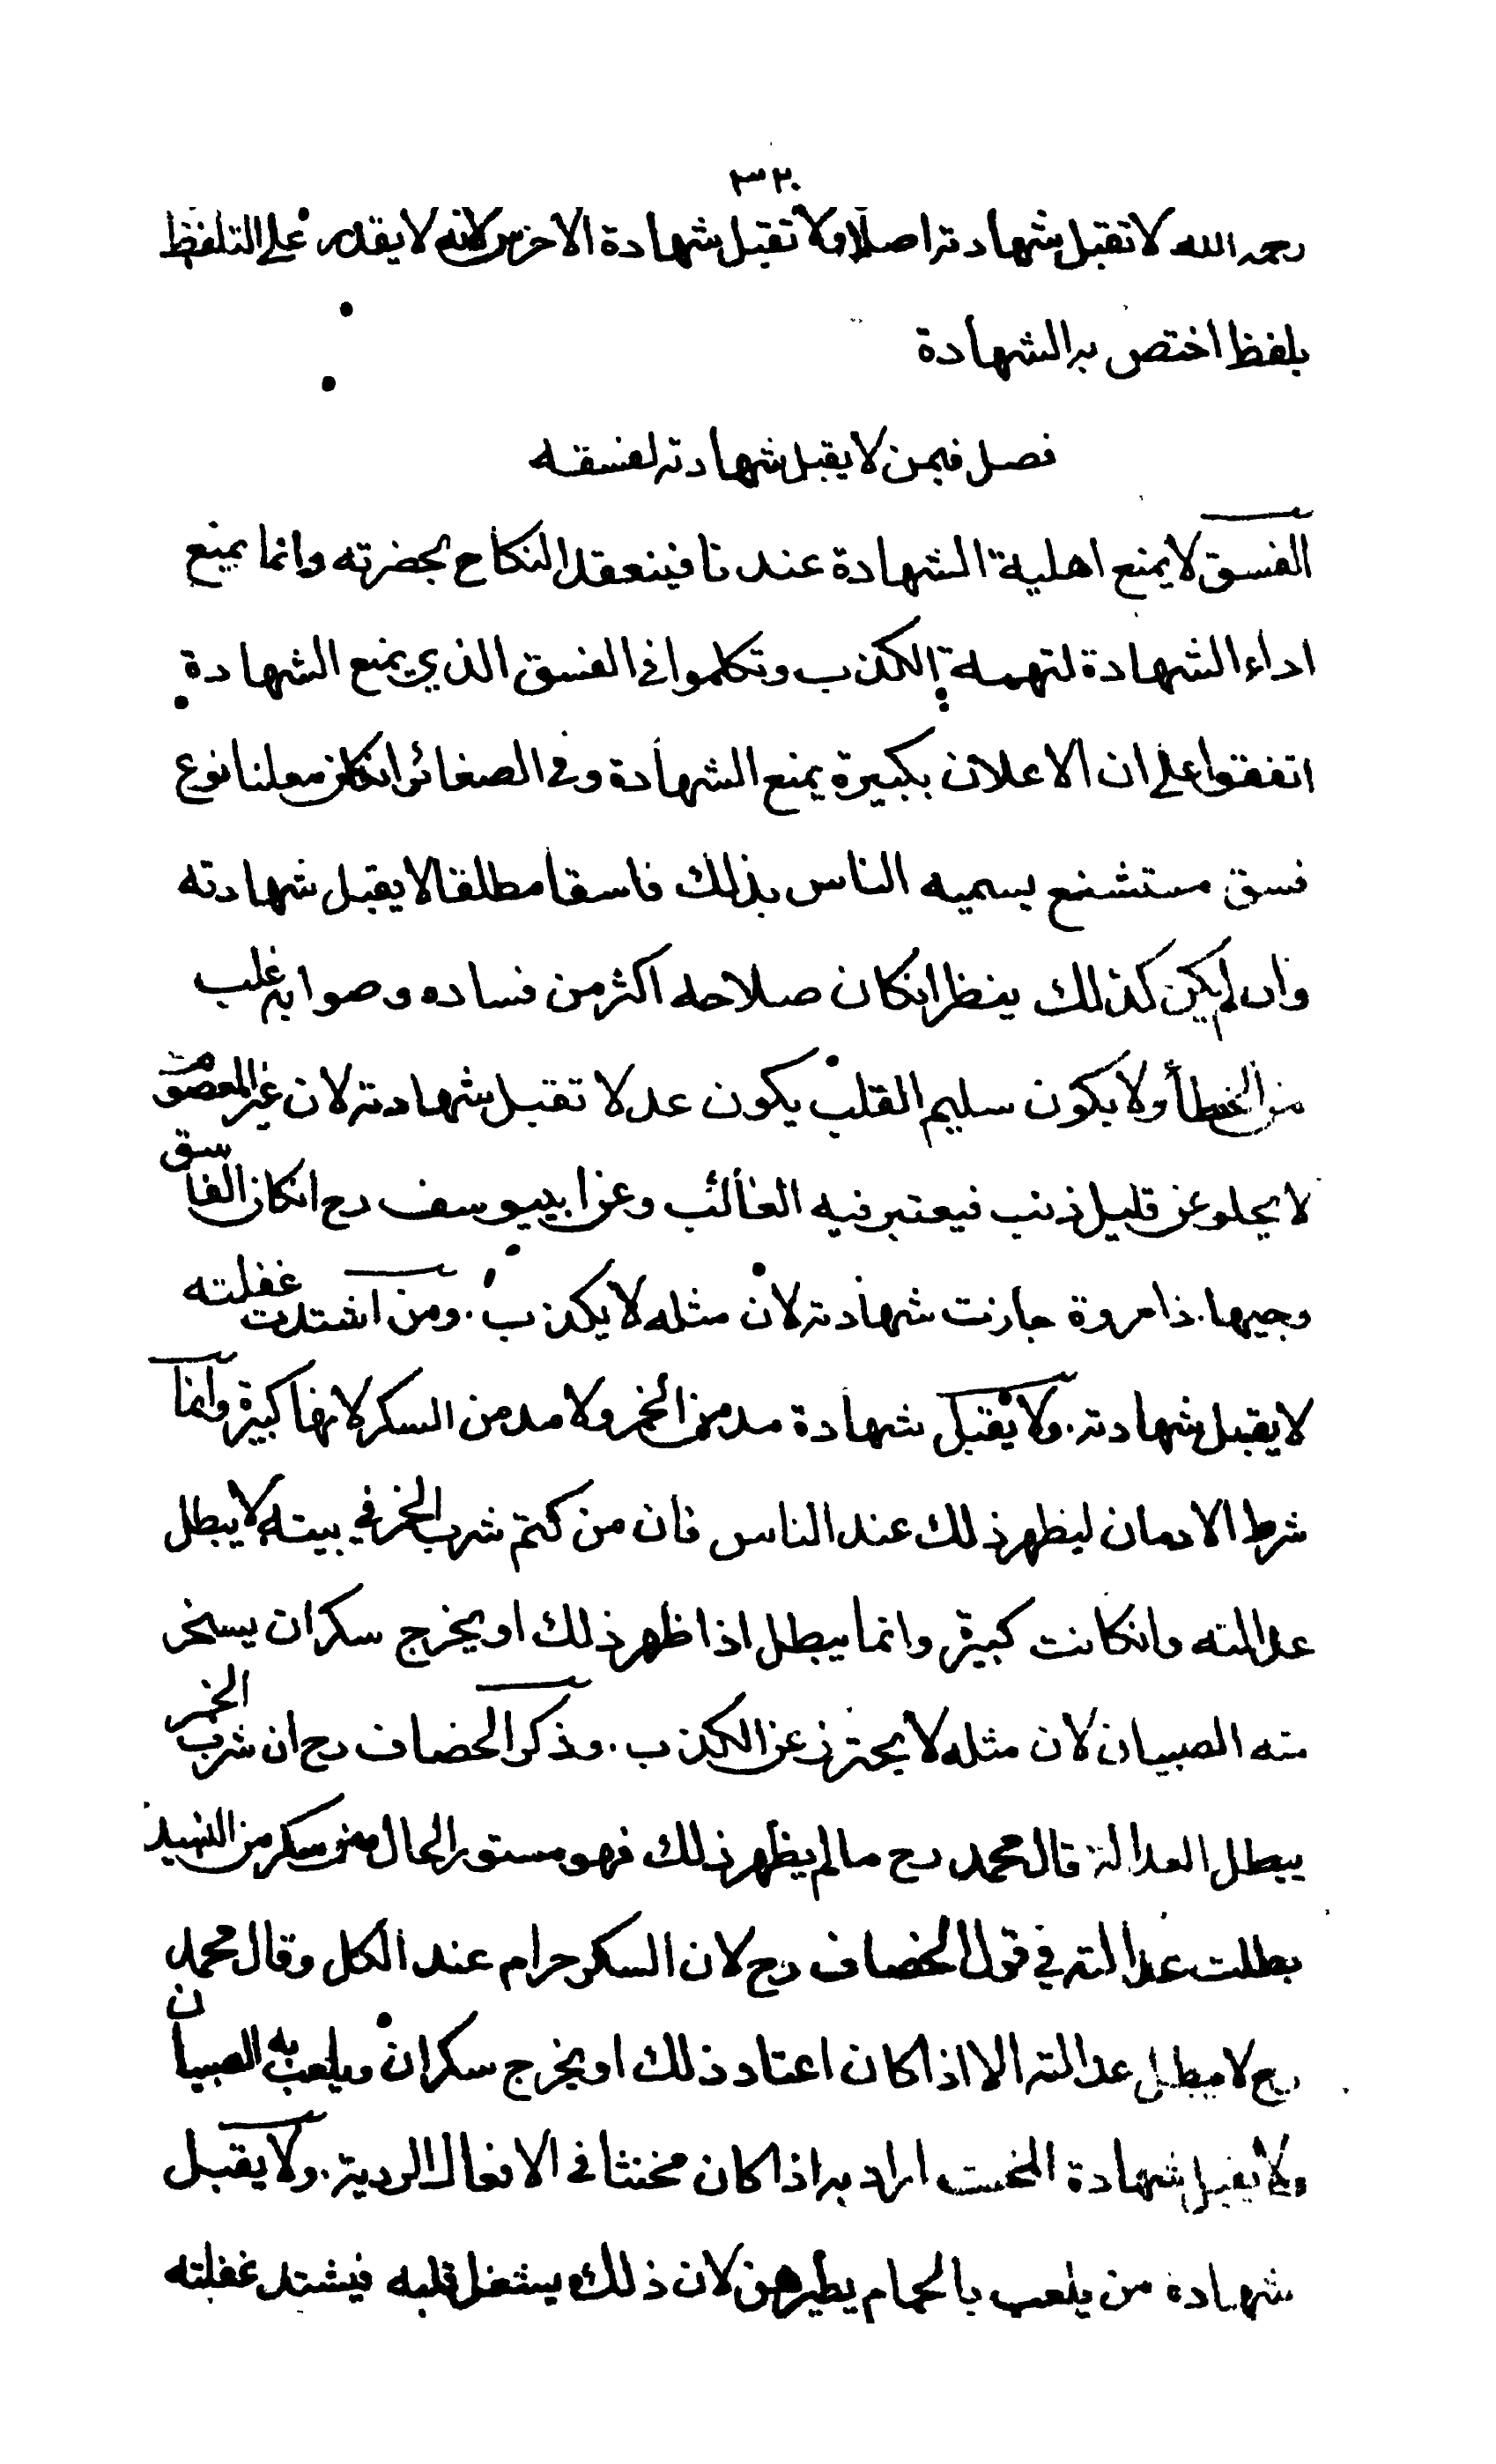 ٣٢٠
رحمه الله لا تقبل شهادته اصلا ولا تقبل شهادة الاخرس لانه لا يقدر على التلفظ
بلفظ اختص به الشهادة
فصل فيمن لا يقبل شهادته لفسقه
الفسق لا يمنع اهلية الشهادة عندنا فينعقد النكاح بحضرته وانما يمنع
اداء الشهادة لتهمة الكذب وتكلموا في الفسق الذي يمنع الشهادة
اتفقوا على ان الاعلان بكبيرة يمنع الشهادة وفي الصغائر انكان معلنا نوع
فسق مستشنع يسميه الناس بذلك فاسقا مطلقا لا يقبل شهادته
وان لم يكن كذلك ينظر انكان صلاحه اكثر من فساده وصوابه غلب
من الخطأ ولا يكون سليم القلب يكون عدلا تقبل شهادته لان غير المعصوم
لا يخلو عن قليل ذنب فيعتبر فيه الغالب وعن ابي يوسف رح انكان الفاسق
وجيها ذا مروة جازت شهادته لان مثله لا يكذب . ومن اشتدت غفلته
لا يقبل شهادته . ولا يقبل شهادة مدمن الخمر ولا مدمن السكر لانها كبيرة وانما
شرط الادمان ليظهر ذلك عند الناس فان من كتم شرب الخمر في بيته لا يبطل
عدالته وانكانت كبيرة وانما يبطل اذا ظهر ذلك او يخرج سكران يسخر
منه الصبيان لان مثله لا يحترز عن الكذب . وذكر الخصاف رح ان شرب الخمر
يبطل العدالة قال محمد رح ما لم يظهر ذلك فهو مستور الحال ومن سكر من النبيذ
بطلت عدالته في قول الخصاف رح لان السكر حرام عند الكل وقال محمد
رح لا يبطل عدالته الا اذا كان اعتاد ذلك او يخرج سكران ويلعب به الصبيان
ولا يقبل شهادة المخنث اراد به اذا كان مخنثا في الافعال الردية . ولا يقبل
شهادة من يلعب بالحمام يطيرهن لان ذلك يشتغل قلبه فيشتد غفلته